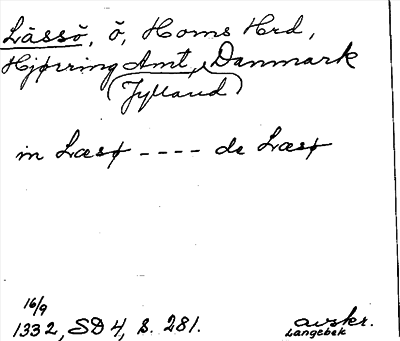 Läsö, ö, Horns Hrd,
Hjørring Amt, Danmark
(Jylland)
in Læsø ---- de Læsø
16/9
1332, SD 4, s. 281.
avskr.
Langebek